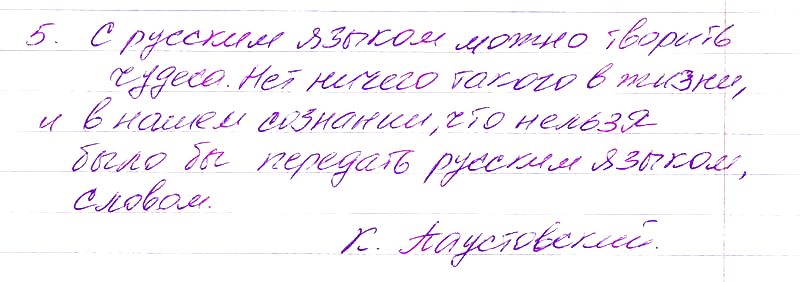 5. С русским языком можно творить
чудеса. Нет ничего такого в жизни,
и в нашем сознании, что нельзя
было бы передать русским языком,
словом.
К. Паустовский.